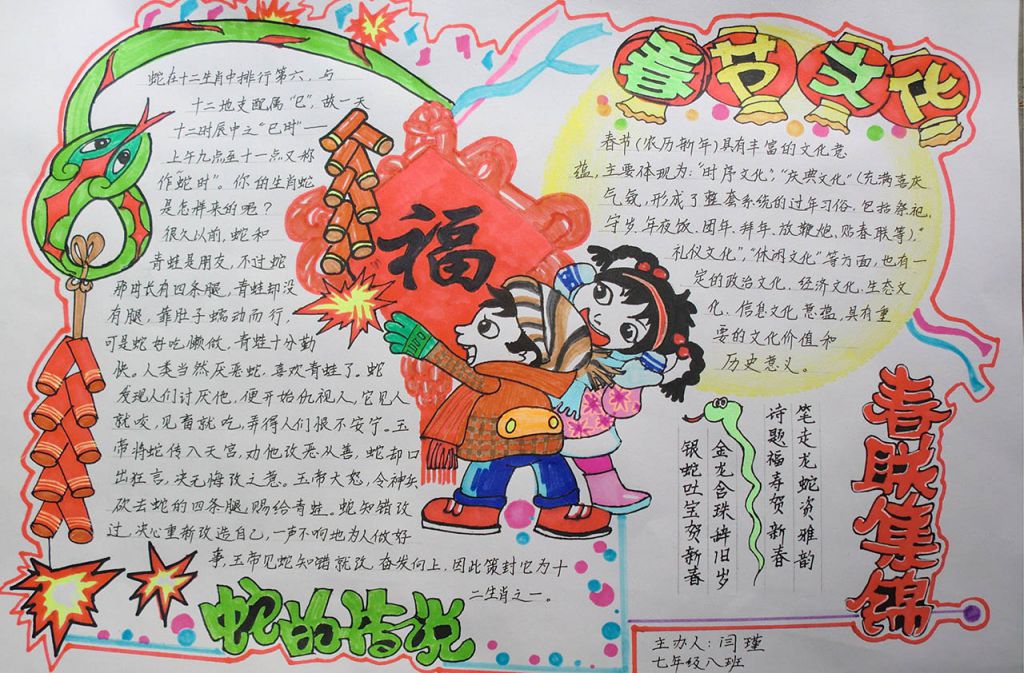 蛇在十二生肖中排行第六，与
十二地支配属"巳"，故一天
十二时辰中之"巳时"——
上午九点至十一点又称
作"蛇时"。你的生肖蛇
是怎样来的吧？
很久以前，蛇和
青蛙是朋友，不过蛇
那时长有四条腿，青蛙却没
有腿，靠肚子蠕动而行，
可是蛇好吃懒做，青蛙十分勤
快。人类当然厌恶蛇，喜欢青蛙了。蛇
发现人们讨厌他，便开始仇视人，它见人
就咬，见畜就吃，弄得人们很不安宁。玉
帝将蛇传入天宫，劝他改恶从善，蛇却口
出狂言，决无悔改之意。玉帝大怒，令神兵
砍去蛇的四条腿，赐给青蛙。蛇知错改
过，决心重新改造自己，一声不响地为人做好
事，玉帝见蛇知错就改，奋发向上，因此策封它为十
二生肖之一。
蛇的传说
福
春节文化
春节（农历新年）具有丰富的文化意
蕴，主要体现为："时序文化"，"庆典文化"（充满喜庆
气氛，形成了整套系统的过年习俗，包括祭祀、
守岁、年夜饭、团年、拜年、放鞭炮、贴春联等）。"
礼仪文化"，"休闲文化"等方面，也有一
定的政治文化、经济文化、生态文
化、信息文化意蕴，具有重
要的文化价值和
历史意义。
春联集锦
笔走龙蛇资雅韵
诗题福寿贺新春
金龙含珠辞旧岁
银蛇吐宝贺新春
主办人：闫瑾
七年级八班